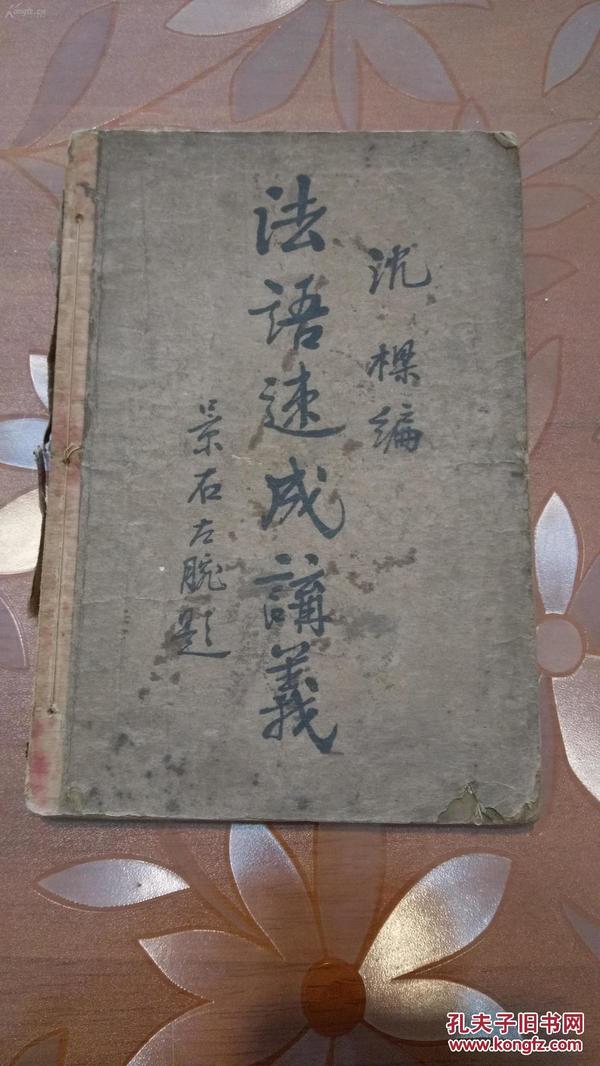 沈樑编
法語速成講義
景石左腕題
Kongfz.cn
孔夫子旧书网
www.kongfz.com